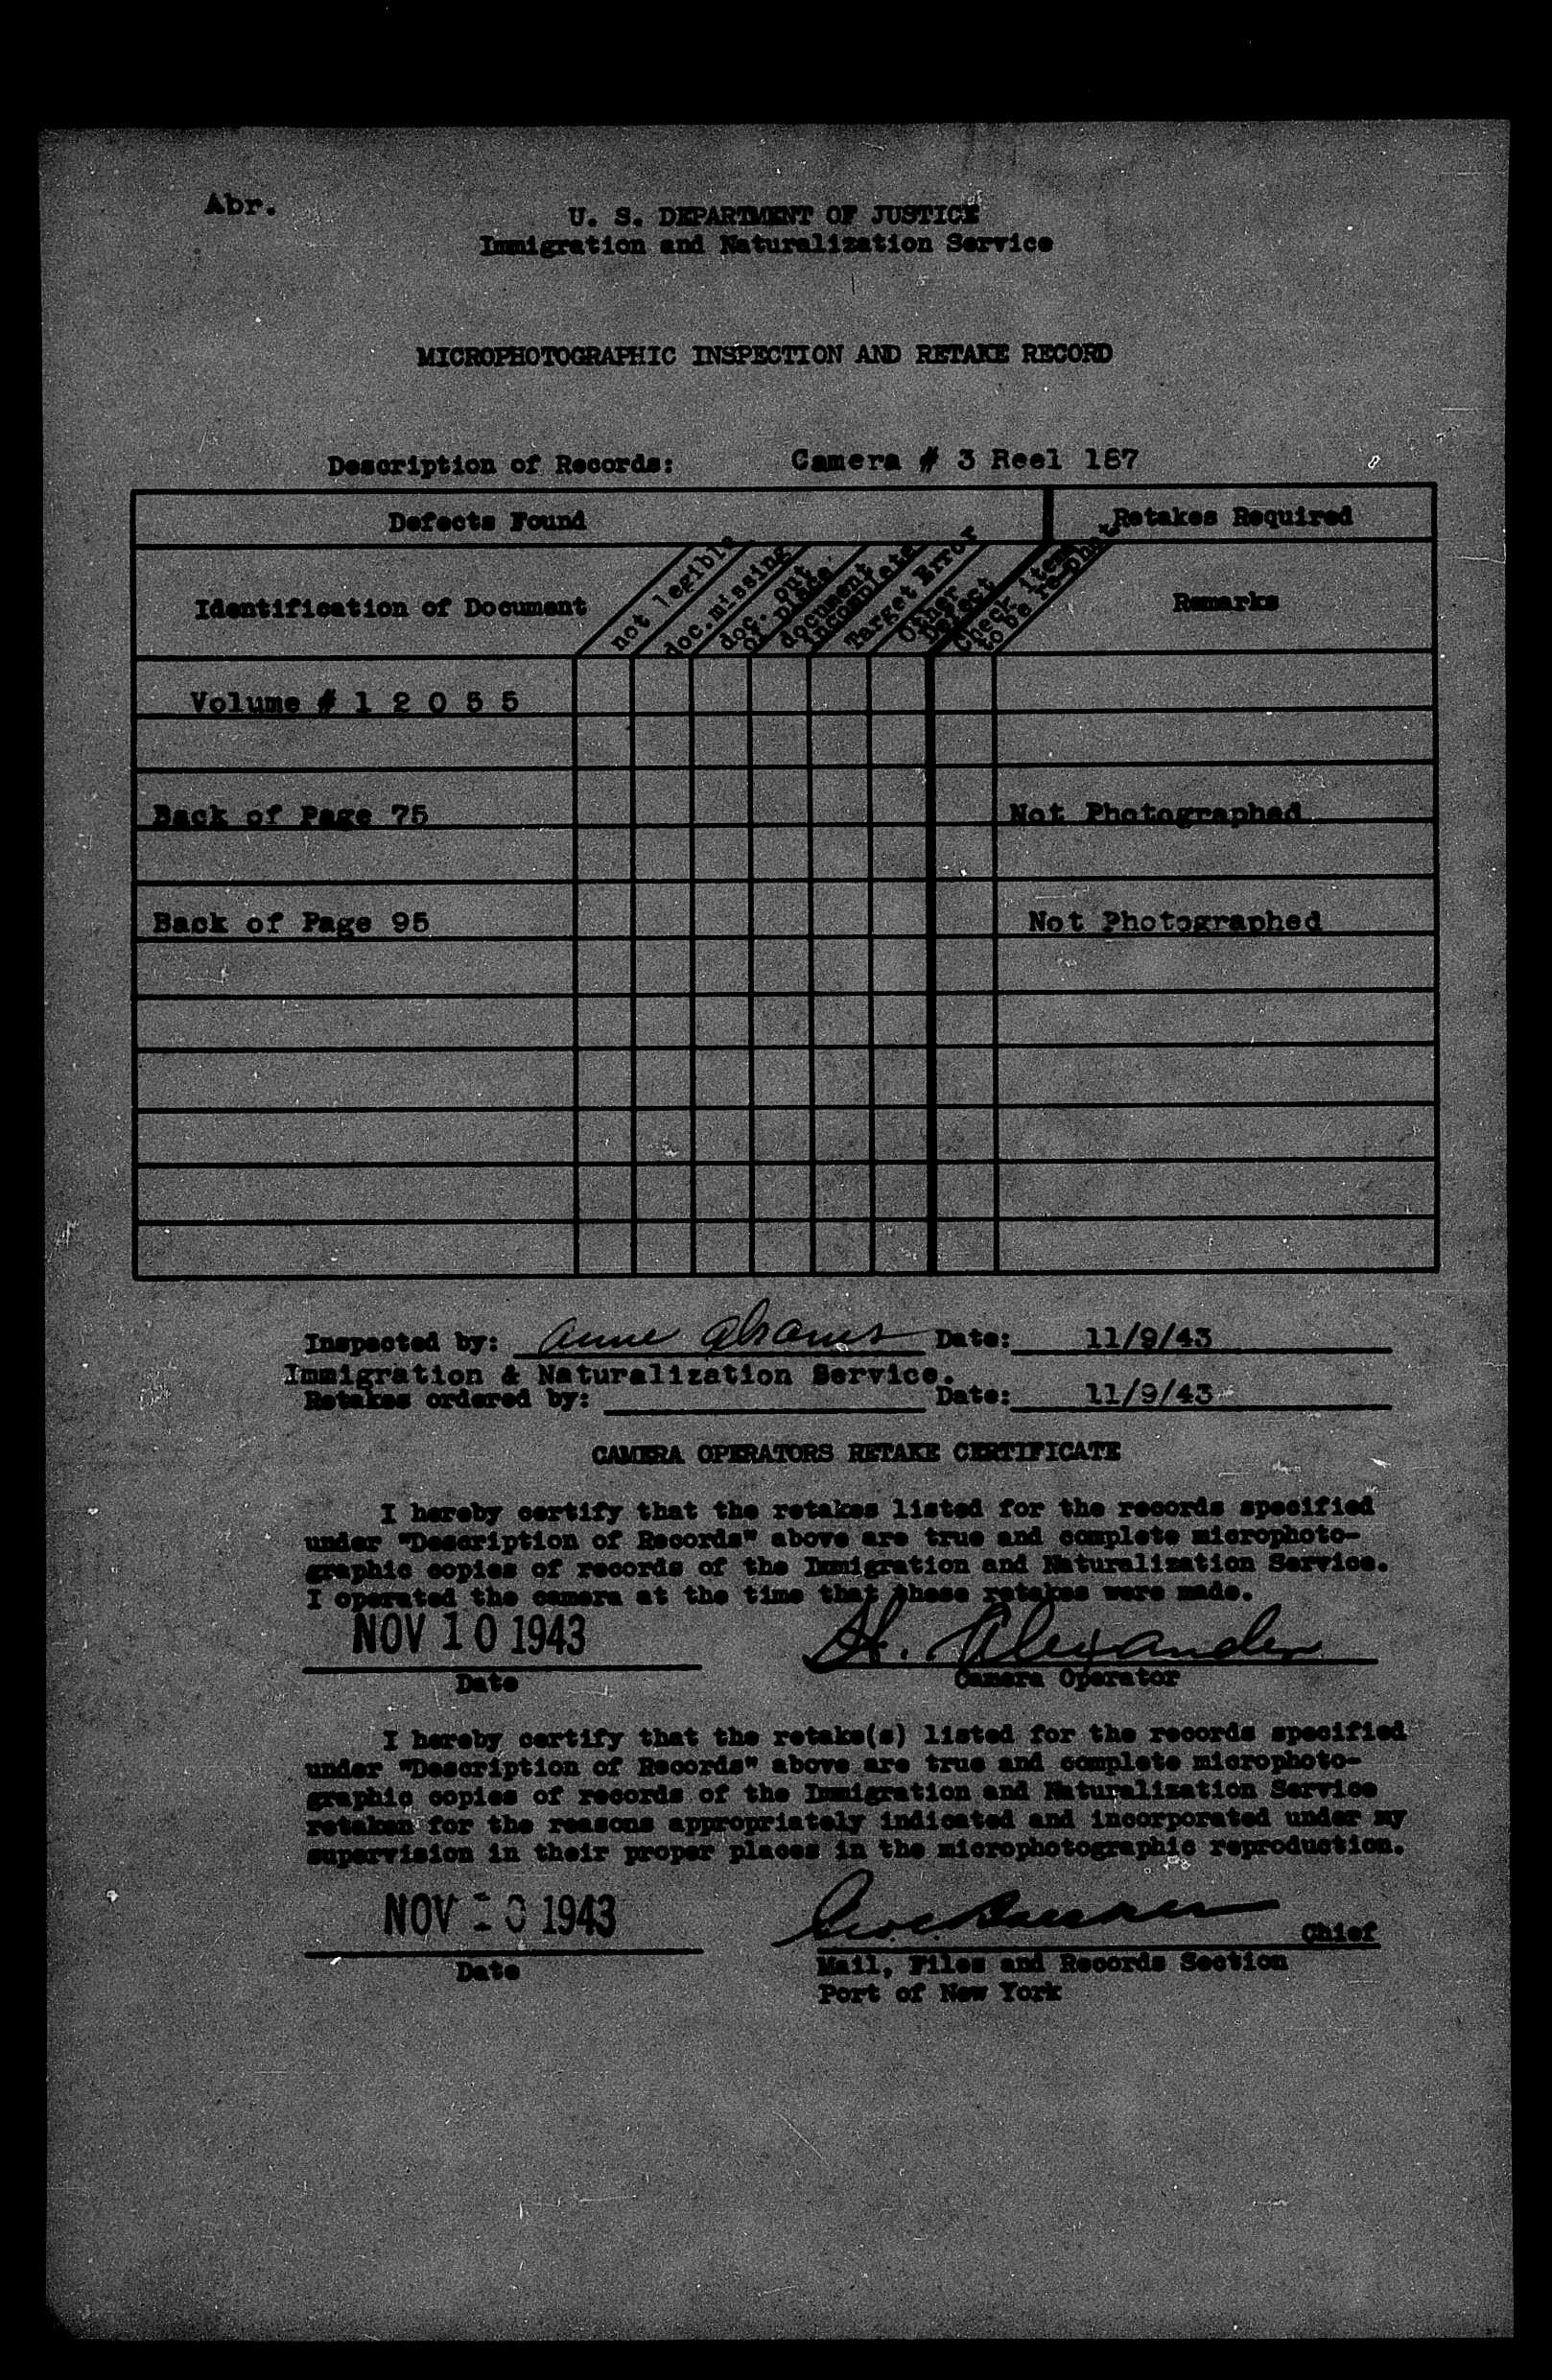 Abr.
U. S. DEPARTMENT OF JUSTICE
Immigration and Naturalization Service
MICROPHOTOGRAPHIC INSPECTION AND RETAKE RECORD
Description of Records: Camera # 3 Reel 187
Defects Found Retakes Required
Identification of Document
not legible
doc.missing
doc. out
of place
document
incomplete
Target Error
Other
Defect
Check item
to be re-phot.
Remarks
Volume # 1 2 0 5 5
Back of Page 75 Not Photographed
Back of Page 95 Not Photographed
Inspected by: Anne Abrams Date: 11/9/43
Immigration & Naturalization Service.
Retakes ordered by: Date: 11/9/43
CAMERA OPERATORS RETAKE CERTIFICATE
I hereby certify that the retakes listed for the records specified
under "Description of Records" above are true and complete microphoto-
graphic copies of records of the Immigration and Naturalization Service.
I operated the camera at the time that these retakes were made.
NOV 10 1943 H. Alexander
Date Camera Operator
I hereby certify that the retake(s) listed for the records specified
under "Description of Records" above are true and complete microphoto-
graphic copies of records of the Immigration and Naturalization Service
retaken for the reasons appropriately indicated and incorporated under my
supervision in their proper places in the microphotographic reproduction.
NOV 10 1943 Chief
Date Mail, Files and Records Section
Port of New York